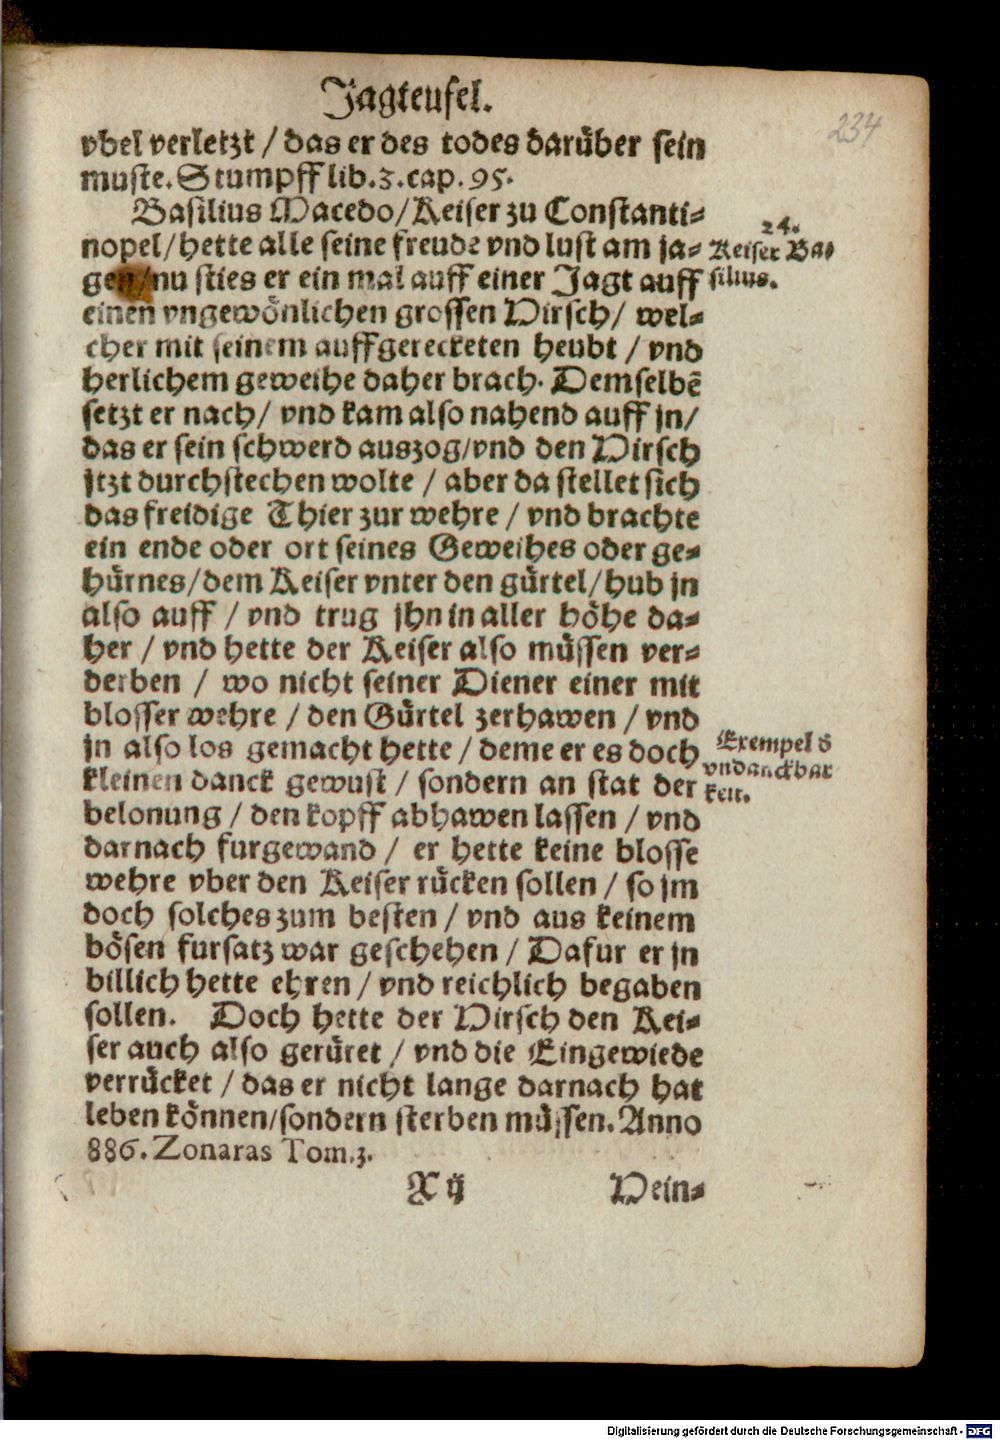 Jagteufel.
234
vbel verletzt / das er des todes darüber sein
muste. Stumpff lib. 3. cap. 95.
Basilius Macedo / Keiser zu Constanti⸗
nopel / hette alle seine freude vnd lust am ja⸗
gen / nu sties er ein mal auff einer Jagt auff
einen vngewönlichen grossen Hirsch / wel⸗
cher mit seinem auffgereckten heubt / vnd
herlichem geweihe daher brach. Demselbē
setzt er nach / vnd kam also nahend auff jn /
das er sein schwerd auszog / vnd den Hirsch
jtzt durchstechen wolte / aber da stellet sich
das freidige Thier zur wehre / vnd brachte
ein ende oder ort seines Geweihes oder ge⸗
hürnes / dem Keiser vnter den gürtel / hub jn
also auff / vnd trug jhn in aller höhe da⸗
her / vnd hette der Keiser also müssen ver⸗
derben / wo nicht seiner Diener einer mit
blosser wehre / den Gürtel zerhawen / vnd
jn also los gemacht hette / deme er es doch
kleinen danck gewust / sondern an stat der
belonung / den kopff abhawen lassen / vnd
darnach furgewand / er hette keine blosse
wehre vber den Keiser rücken sollen / so jm
doch solches zum besten / vnd aus keinem
bösen fursatz war geschehen / Dafur er jn
billich hette ehren / vnd reichlich begaben
sollen. Doch hette der Hirsch den Kei⸗
ser auch also gerüret / vnd die Eingewiede
verrücket / das er nicht lange darnach hat
leben können / sondern sterben müssen. Anno
886. Zonaras Tom. 3.
24.
Keiser Ba⸗
silius.
Exempel d
vndanckbar
keit.
X ij
Hein⸗
Digitalisierung gefördert durch die Deutsche Forschungsgemeinschaft - DFG